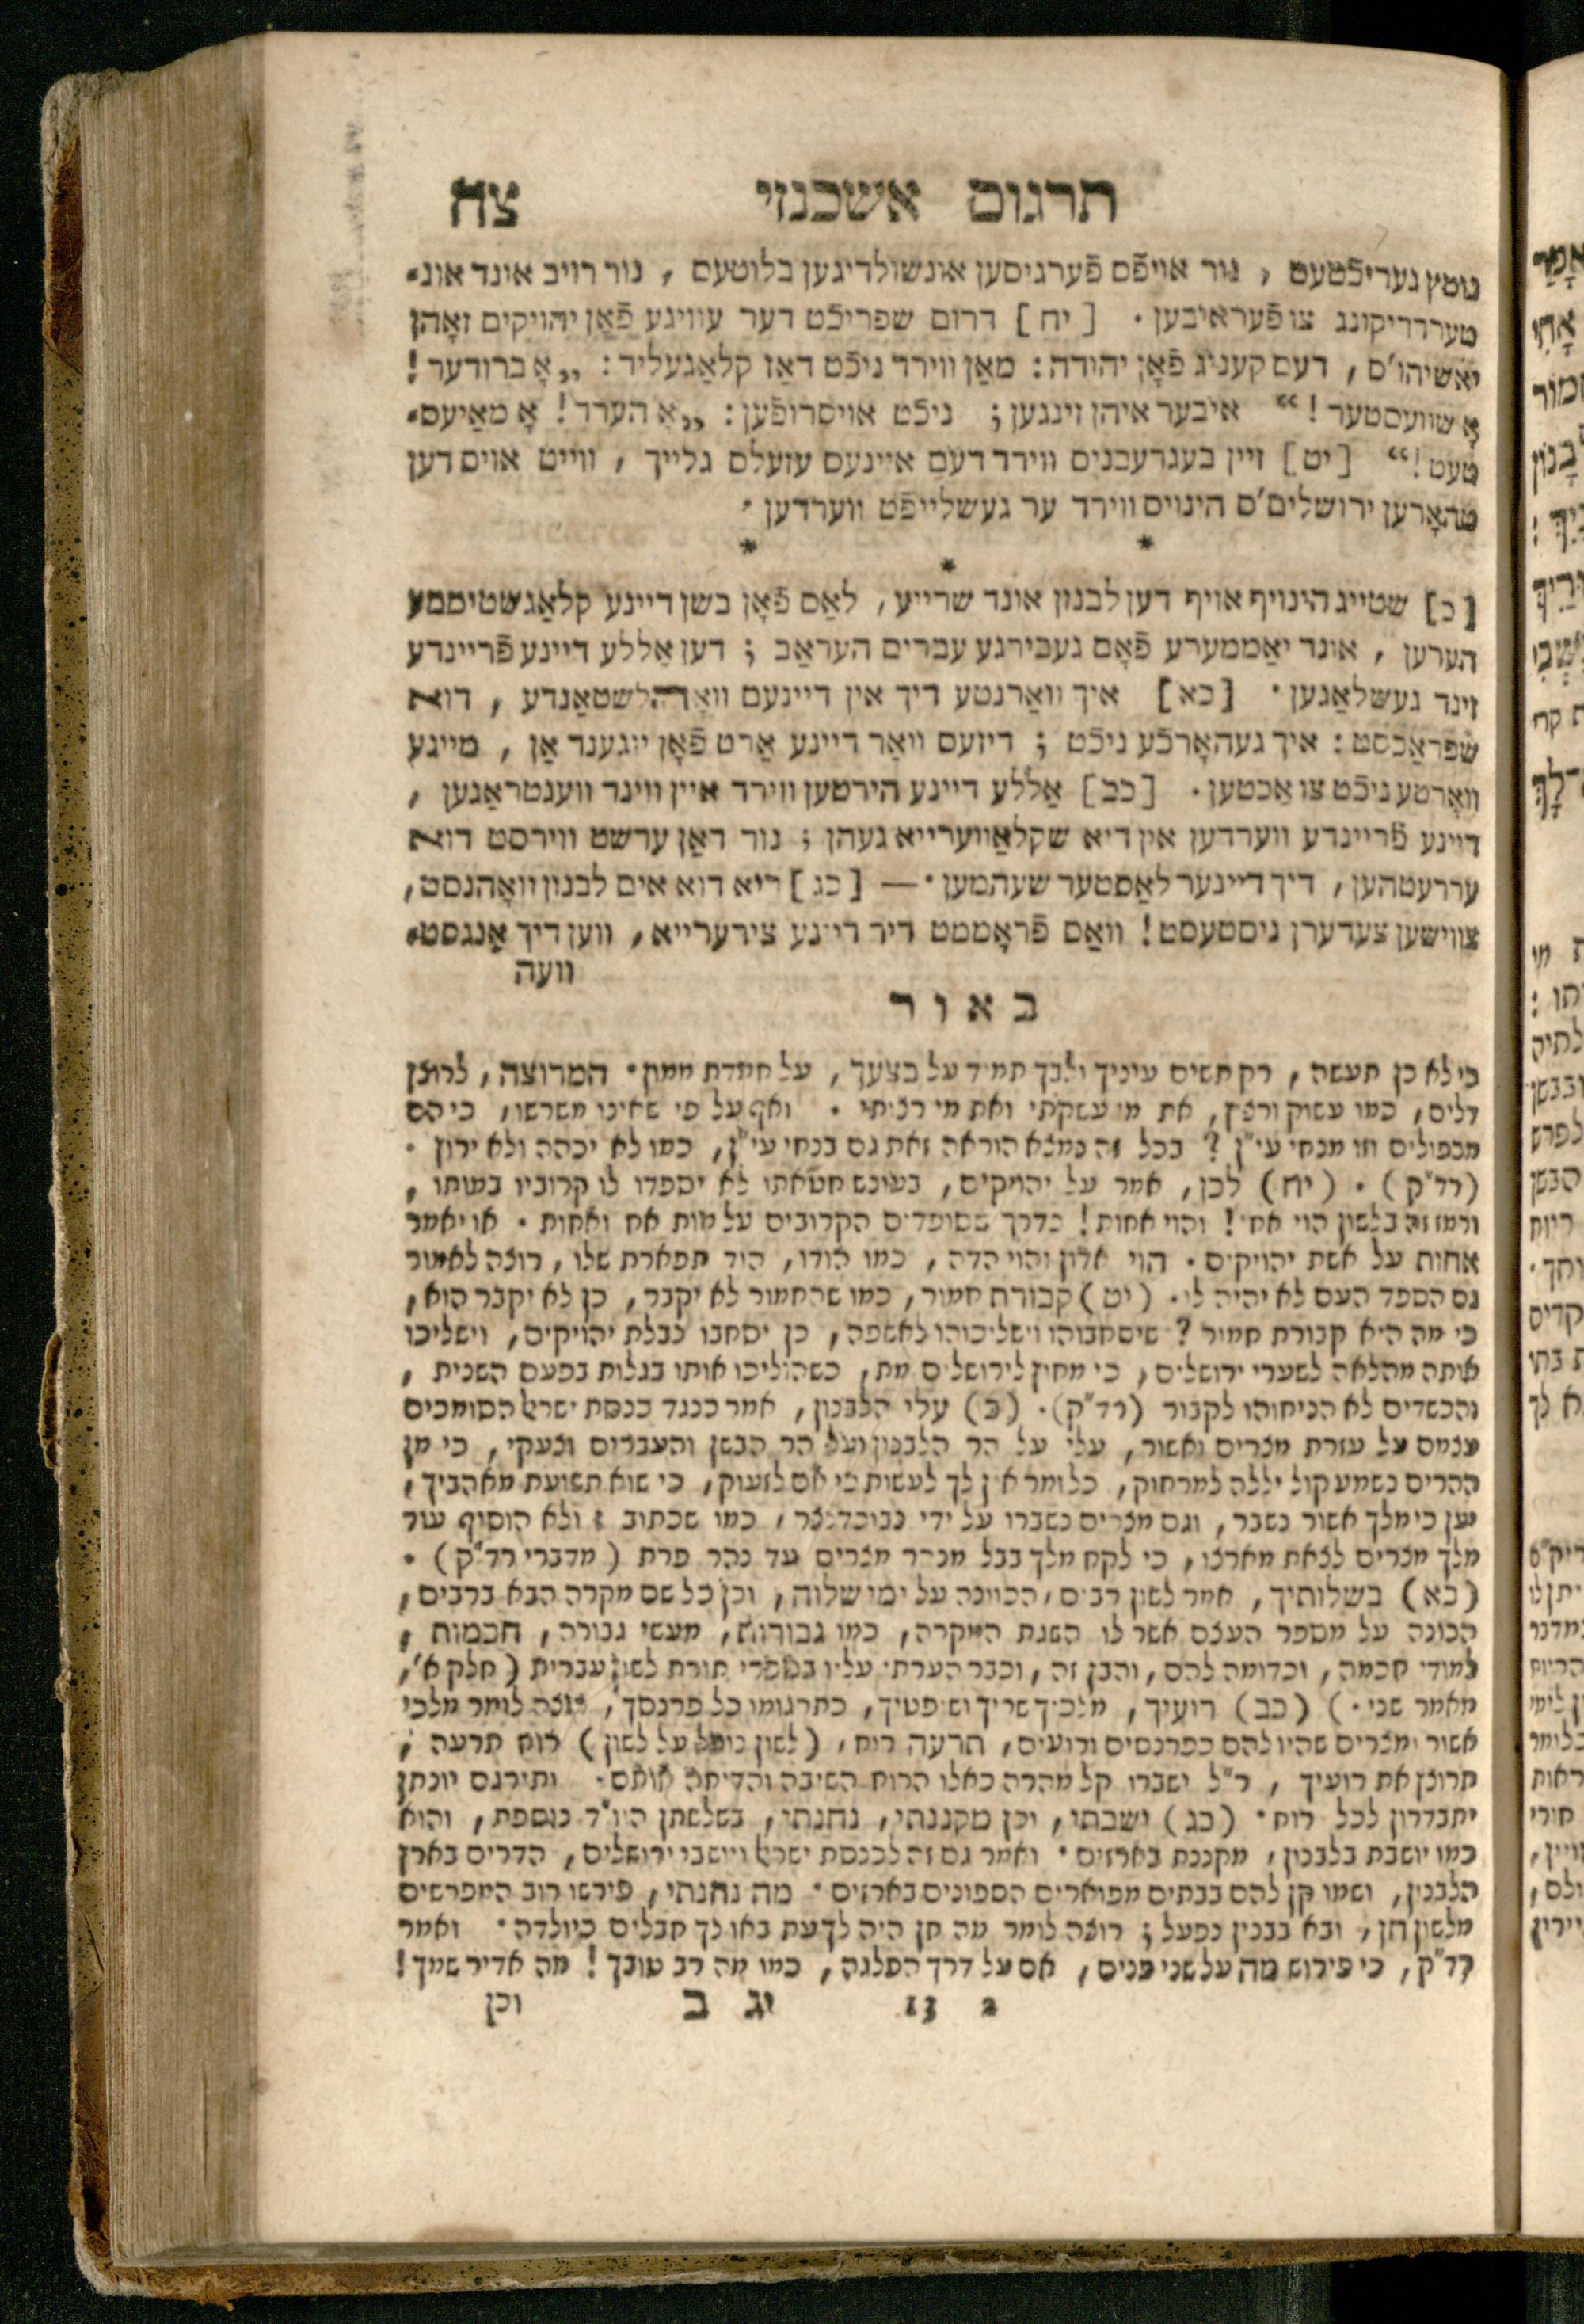 תרגום אשכנזי צח
נוטץ געריכֿטעט , נור אויפֿס פֿערגיסען אונשולדיגען בלוטעס , נור רויב אונד אונ־
טערדריקונג צו פֿעראיבען . [ יח ] דרום שפריכֿט דער עוויגע פֿאָן יהויקים זאָהן
יאשיהו'ס , דעם קעניג פֿאָן יהודה : מאַן ווירד ניכֿט דאַז קלאַגעליד : „אָ ברודער !
אָ שוועסטער !“ איבער איהן זינגען ; ניכֿט אויסרופֿען : „אָ הערר ! אָ מאַיעס־
טעט !“ [ יט ] זיין בעגרעבניס ווירד דעם איינעס עזעלס גלייך , ווייט אויס דען
טהאָרען ירושלים'ס הינויס ווירד ער געשלייפֿט ווערדען .
* * *
[ כ ] שטייג הינויף אויף דען לבנון אונד שרייע , לאַס פֿאָן בשן דיינע קלאַגשטיממע
הערען , אונד יאַממערע פֿאָם געבירגע עברים העראַב ; דען אַללע דיינע פֿריינדע
זינד געשלאַגען . [ כא ] איך וואַרנטע דיך אין דיינעם וואָהלשטאַנדע , דוא
שפראַכסט : איך געהאָרכֿע ניכֿט ; דיזעס וואַר דיינע אַרט פֿאָן יוגענד אַן , מיינע
וואָרטע ניכֿט צו אַכטען . [ כב ] אַללע דיינע הירטען ווירד איין ווינד וועגטראַגען ,
דיינע פֿריינדע ווערדען אין דיא שקלאַווערייא געהן ; נור דאַן ערשט ווירסט דוא
עררעטהען , דיך דיינער לאַסטער שעהמען . — [ כג ] דיא דוא אים לבנון וואָהנסט ,
צווישען צעדערן ניסטעסט ! וואַס פֿראָממט דיר דיינע צירערייא , ווען דיך אָנגסט־
וועה
באור
כי לא כן תעשה , רק תשים עיניך ולבך תמיד על בצעך , על חמדת ממון . המרוצה , לרוצץ
דלים , כמו עשוק ורצוץ , את מי עשקתי ואת מי רצותי . ואף על פי שאינו משרשו , כי הם
מכפולים וזו מנחי עי"ן ? בכל זה נמצא הוראה זאת גם בנחי עי"ן , כמו לא יכהה ולא ירוץ .
(רד"ק) . (יח) לכן , אמר על יהויקים , בעונש חטאתו לא יספדו לו קרוביו במותו ,
ורמז זה בלשון הוי אחי ! והוי אחות ! כדרך שסופדים הקרובים על מות אח ואחות . או יאמר
אחות על אשת יהויקים . הוי אדון והוי הדה , כמו הודו , הוד תפארת שלו , רוצה לאמור
גם הספד העם לא יהיה לו . (יט) קבורת חמור , כמו שהחמור לא יקבר , כן לא יקבר הוא ,
כי מה היא קבורת חמור ? שיסחבוהו וישליכוהו לאשפה , כן יסחבו נבלת יהויקים , וישליכו
אותה מהלאה לשערי ירושלים , כי מחוץ לירושלים מת , כשהוליכו אותו בגלות בפעם השנית ,
והכשדים לא הניחוהו לקבור (רד"ק) . (כ) עלי הלבנון , אמר כנגד כנסת ישראל הסומכים
עצמם על עזרת מצרים ואשור , עלי על הר הלבנון ועל הר הבשן והעברים וצעקי , כי מן
ההרים נשמע קול יללה למרחוק , כלומר אין לך לעשות כי אם לזעוק , כי שוא תשועת מאהביך ,
יען כי מלך אשור נשבר , וגם מצרים נשברו על ידי נבוכדנצר , כמו שכתוב : ולא הוסיף עוד
מלך מצרים לצאת מארצו , כי לקח מלך בבל מנהר מצרים עד נהר פרת ( מדברי רד"ק) .
(כא) בשלותיך , אמר לשון רבים , הכוונה על ימי שלוה , וכן כל שם מקרה הבא ברבים ,
הכונה על מספר העצם אשר לו השגת המקרה , כמו גבורות , מעשי גבורה , חכמות ,
למודי חכמה , וכדומה להם , והבן זה , וכבר הערתי עליו בספרי תורת לשון עברית ( חלק א' ,
מאמר שני . ) (כב) רועיך , מלכיך שריך ושופטיך , כתרגומו כל פרנסך , רוצה לומר מלכי
אשור ומצרים שהיו להם כפרנסים ורועים , תרעה רוח , (לשון נופל על לשון) רוח תרעה ,
תרוצץ את רועיך , ר"ל ישברו קל מהרה כאלו הרוח השיבה והדיחה אותם . ותירגם יונתן
יתבדרון לכל רוח . (כג) ישבתי , וכן מקננתי , נחנתי , בשלשתן היו"ד נוספת , והוא
כמו יושבת בלבנון , מקננת בארזים . ואמר גם זה לכנסת ישראל ויושבי ירושלים , הדרים בארץ
הלבנון , ושמו קן להם בבתים מפוארים הספונים בארזים . מה נחנתי , פירשו רוב המפרשים
מלשון חן , ובא בבנין נפעל ; רוצה לומר מה חן היה לך עת באו לך חבלים כיולדה . ואמר
רד"ק , כי פירוש מה על שני פנים , אם על דרך הפלגה , כמו מה רב טובך ! מה אדיר שמך !
13 2 יג ב וכן